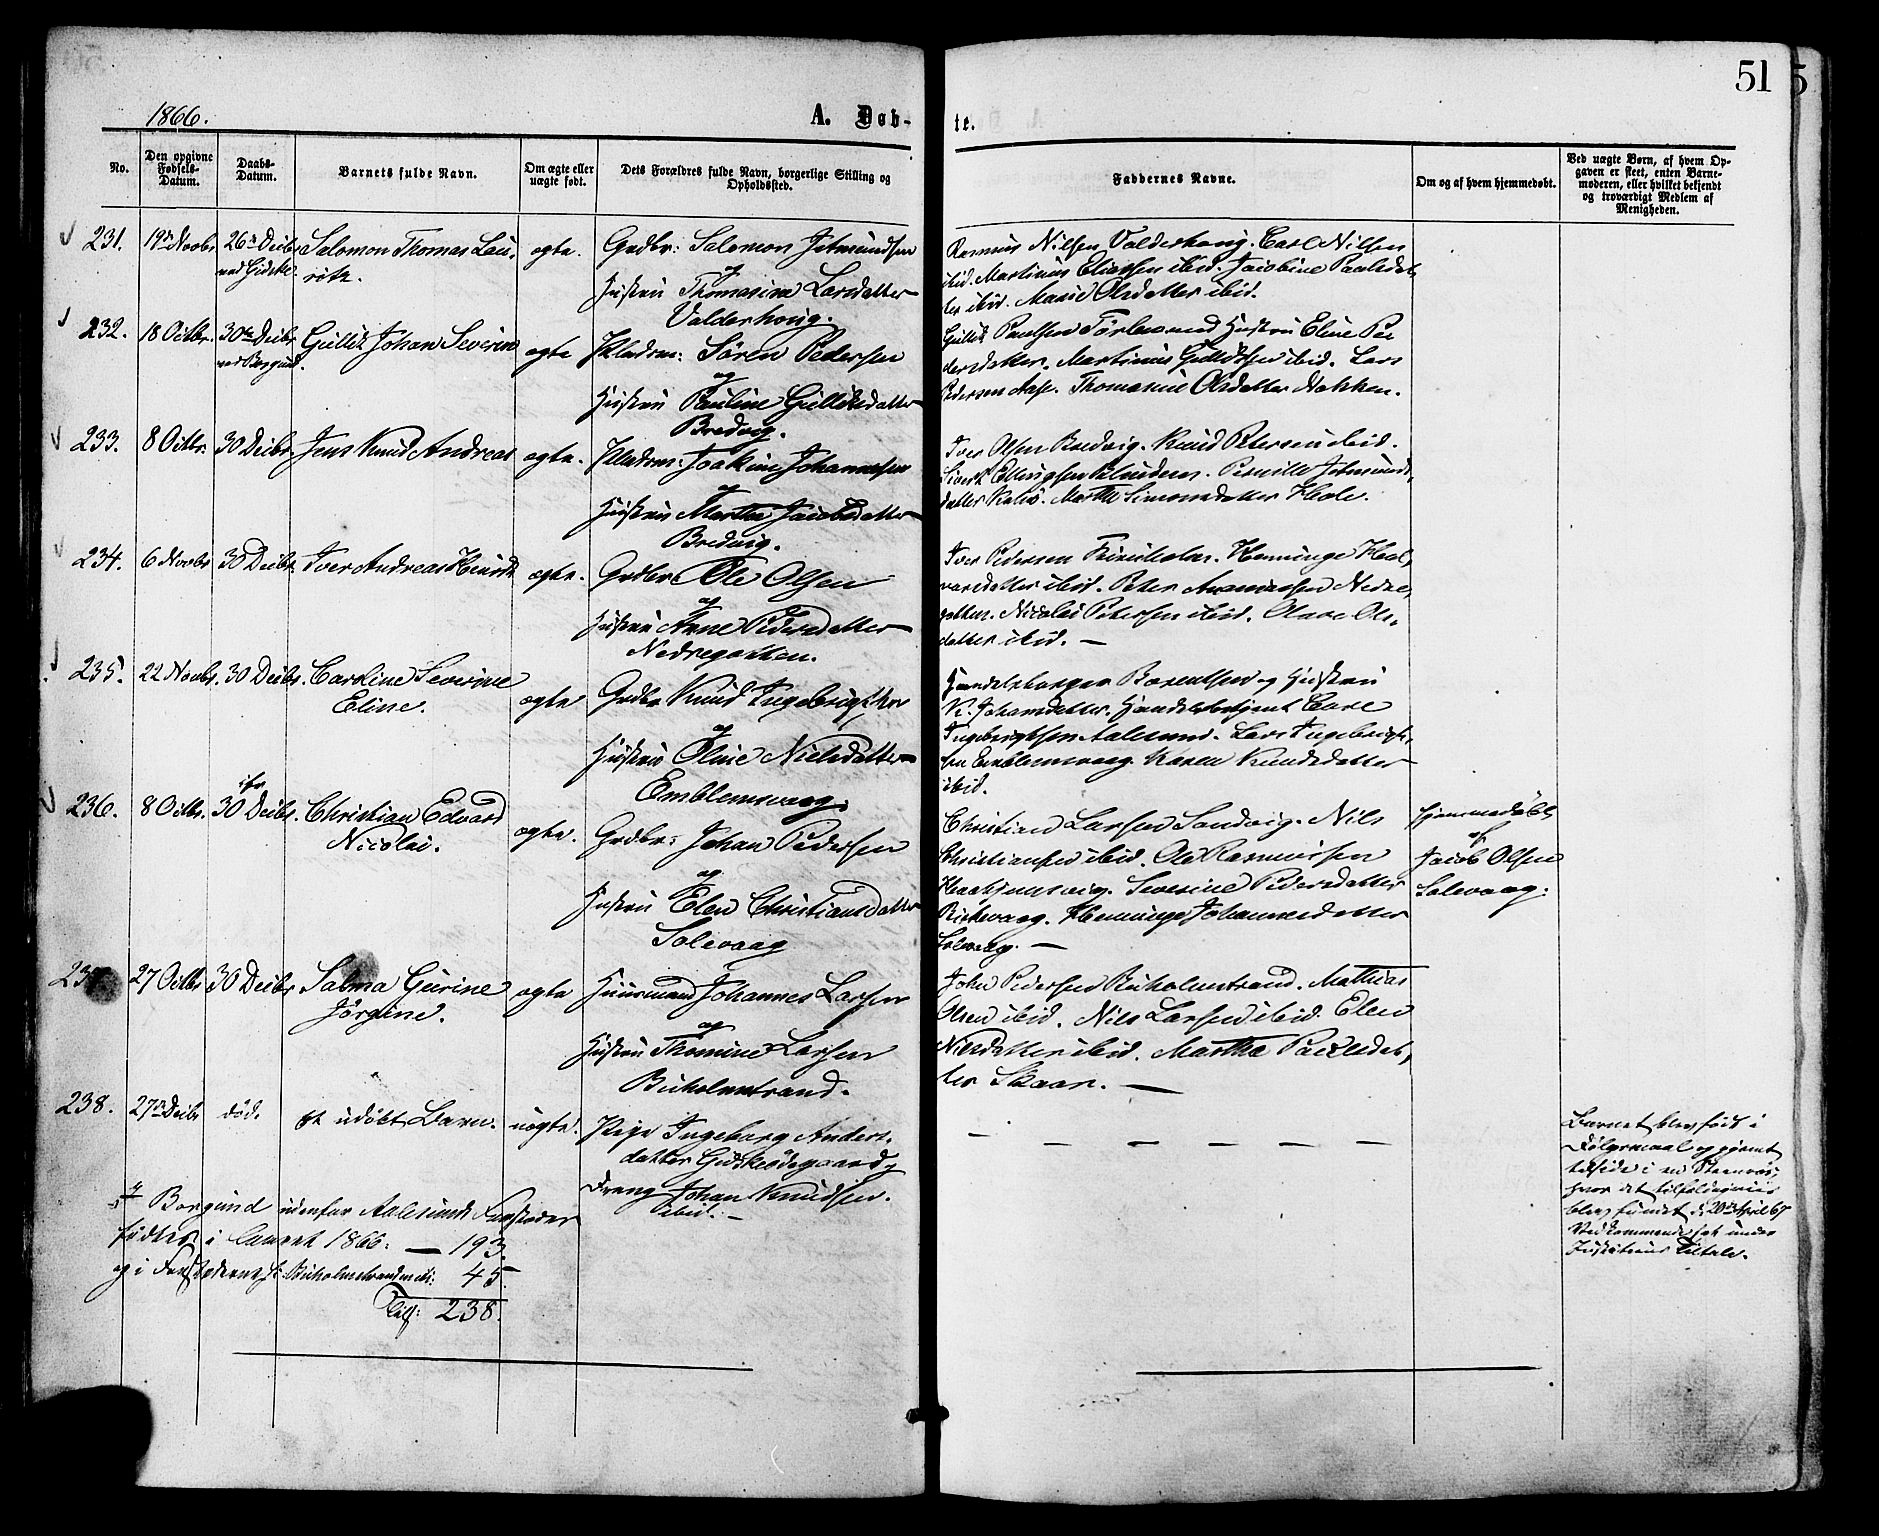 51
5
1866.
A. Døb-
te.
No.
Den opgivne Fødsels-Datum.
Daabs-Datum.
Barnets fulde Navn.
Om ægte eller uægte født.
Dets Forældres fulde Navn, borgerlige Stilling og Opholdssted.
Faddernes Navne.
Om og af hvem hjemmedøbt.
Ved uægte Børn, af hvem Op-
gaven er skeet, enten Barne-
moderen, eller hvilket bekjendt
og troværdigt Medlem af
Menigheden.
231. 19de Novbr 26de Decbr Salomon Thomas Lau- ægte. Grdbr: Salomon Jetmundsen
ved Giske. rits. og
Hustru Thomasine Larsdatter
Valderhoug.
Rasmus Nilsen Valderhoug. Carl Nilsen
ibid. Martinus Eliassen ibid. Jacobine Paulsdat-
ter ibid. Marie Olsdatter ibid.
232. 18 Octbr. 30te Decbr Gullik Johan Severin ægte Søren Pedersen
ved Borgund. og
Hustru Pauline Gulliksdatter
Bredvig.
Gullik Paulsen og Hustru Eline Pe-
dersdatter. Martinus Gulliksen ibid. Lars
Pedersen Aase. Thomasine Olsdatter Nakken.
233. 8 Octbr. 30 Decbr Jens Knud Andreas ægte. Joakim Johannesen
og
Hustru Marthe Jacobsdatter
Bredvig.
Iver Olsen Bredvig. Knud Petersen ibid.
Sivert Ellingsen Pernille Jetmunds-
datter Marthe Simonsdatter
234. 6 Novbr 30 Decbr. Iver Andreas Henrik ægte. Grdbr Ole Olsen
og
Hustru Anne Pedersdatter
Nedregotten.
Iver Pedersen Henninge
ibid. Peter Nedre-
gotten. Nicolai Petersen ibid. Ols-
datter ibid. —
235. 22 Novbr. 30 Decbr. Caroline Severine ægte Grdbr Knud Ingebrigtsen
Eline. og
Hustru Oline Nielsdatter
Emblemsvaag.
Handelsborger Berentsen og Hustru
K. Handelsbetjent
Ingebrigtsen Aalesund. Lars Ingebrigt-
sen Emblemsvaag. Karen Knudsdatter
ibid.
236. 8 Octbr. 30 Decbr. Christian Edvard ægte. Grdbr: Johan Pedersen
Nicolai. og
Hustru Elen Christiansdatter
Solevaag
Christian Larsen Sandvig. Nils
Christiansen ibid. Ole Rasmussen
Severine Pedersdatter
Henninge Johannesdatter
Solevaag. —
Hjemmedøbt
af
Jacob Olsen
Solevaag.
237. 27 Octbr 30 Decbr Salma Gurine ægte Huusmand Johannes Larsen
Jørgine. og
Hustru Thomine Larsen
Buholmstrand.
John Pedersen Buholmstrand. Mathias
Olsen ibid. Nils Larsen ibid. Elen
Nilsdatter ibid. Marthe Paulsdat-
ter Skaar. —
238. 27de Decbr død. et udøbt Barn. uægte. Pige Ingeborg Anders-
datter Giskeødegaard og
Dreng Johan Knudsen
ibid. —
Barnet blev født i
Dølgsmaal og gjemt
hvor det tilfældigviis
blev fundet d. 20de April 67
Vedkommende sat under
Justitiens Tiltale.
I Borgund udenfor Aalesunds Forstæder
fødtes i Aaret 1866: — 193.
og i Forstæderne Buholmstranden etc: 45.
Tils: 238.